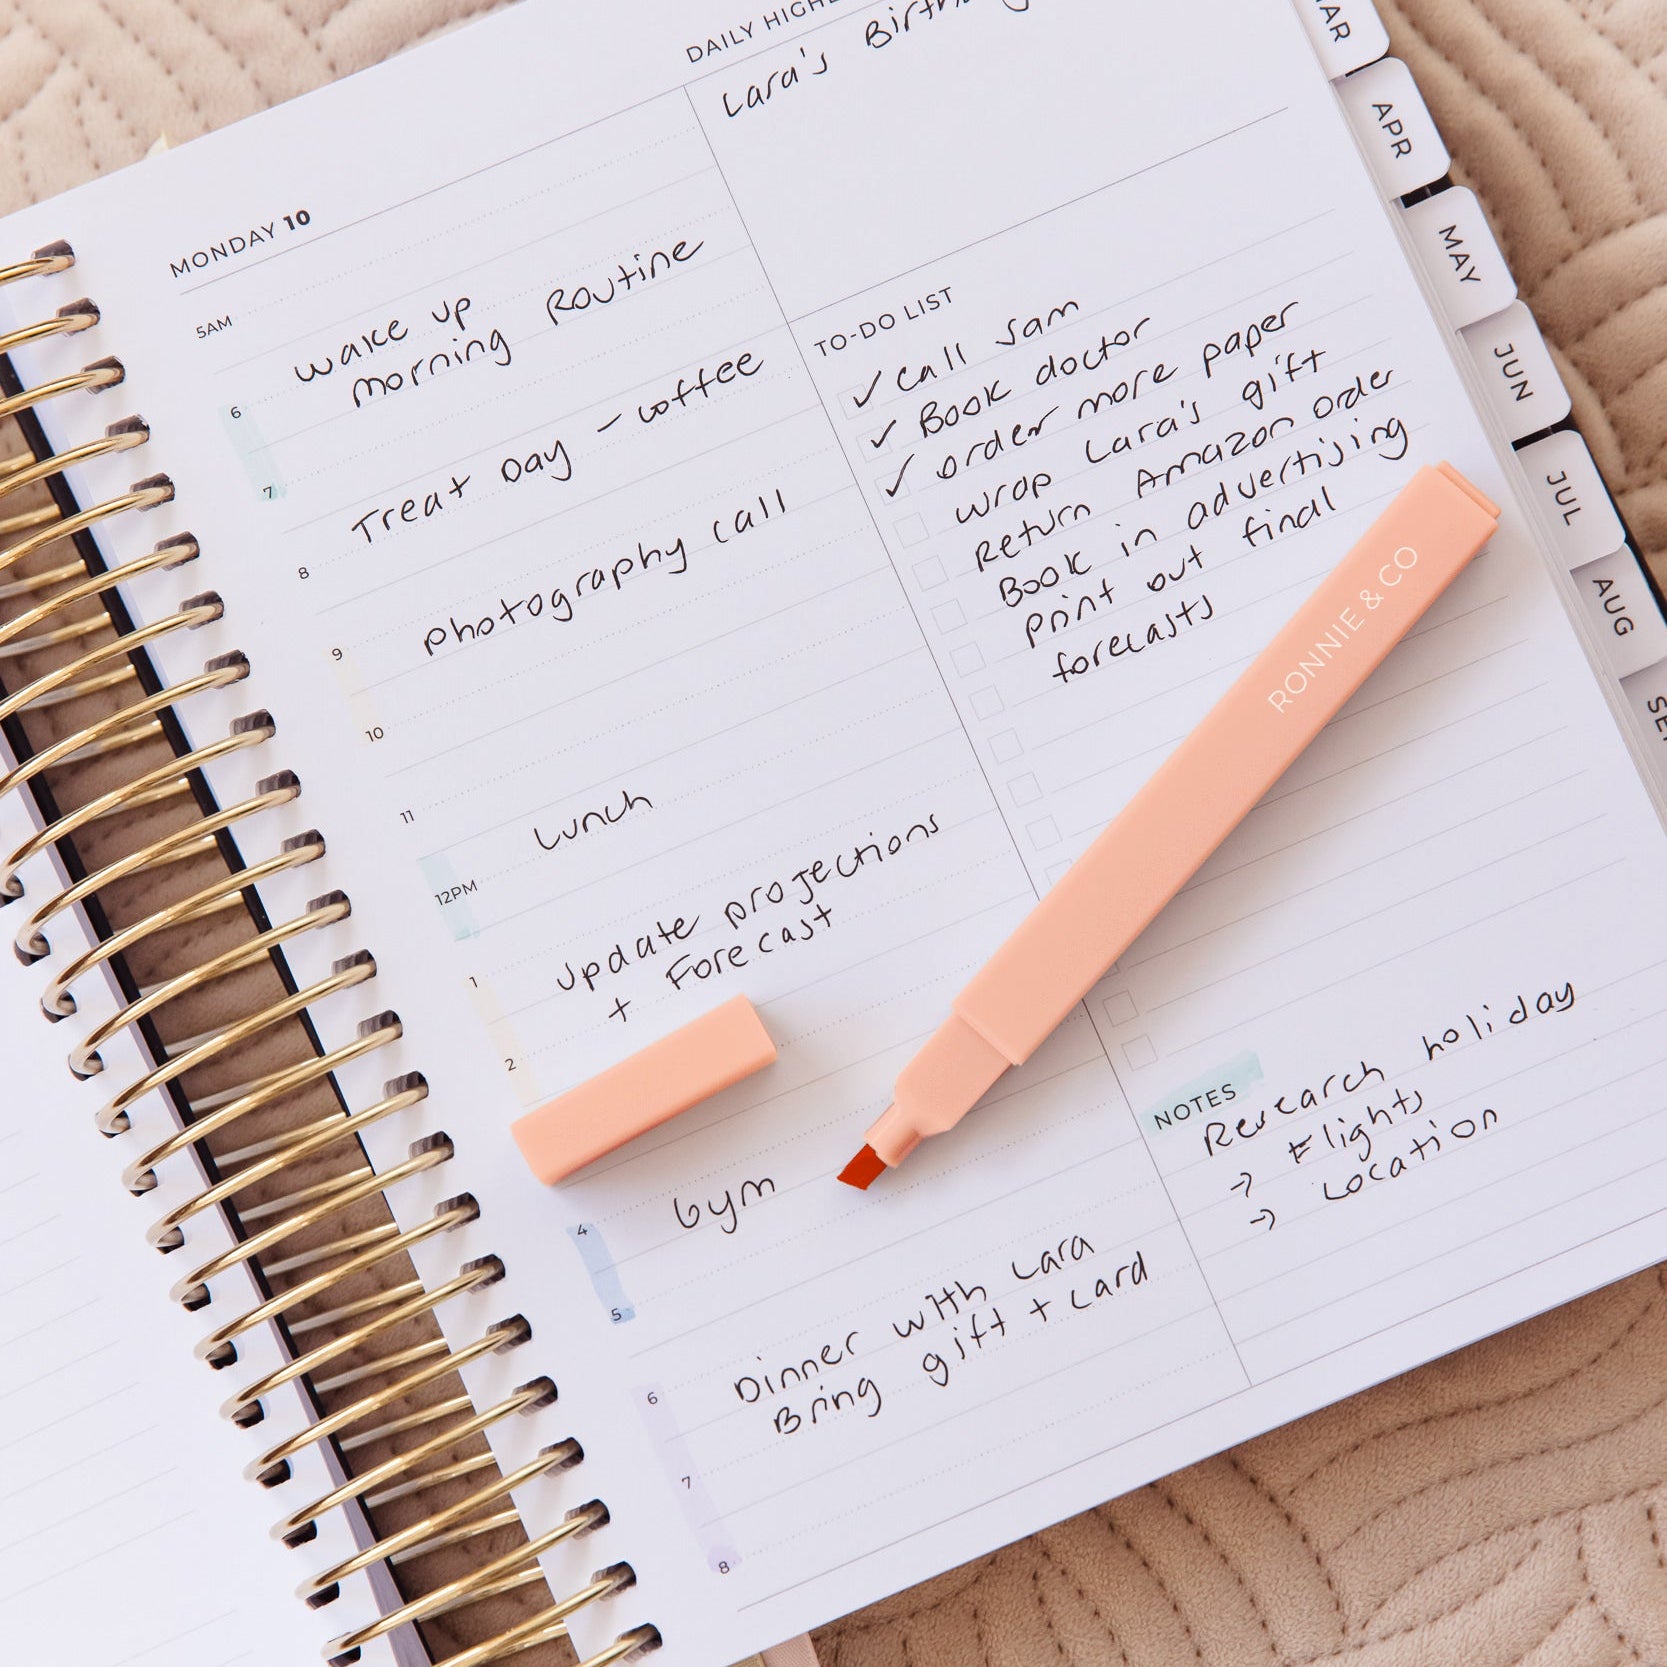 DAILY
Lara's
MONDAY 10
5AM
wake up
6
morning Routine
7
Treat Day - coffee
8
photography call
9
10
11
Lunch
12PM
update projections
1
+ Forecast
2
Gym
4
5
Dinner with Lara
6
Bring gift + card
7
8
TO-DO LIST
✓ call sam
✓ Book doctor
✓ order more paper
wrap Lara's gift
Return Amazon order
Book in advertising
print out final
forecasts
NOTES
Research holiday
→ Flights
→ Location
RONNIE & CO
APR
MAY
JUN
JUL
AUG